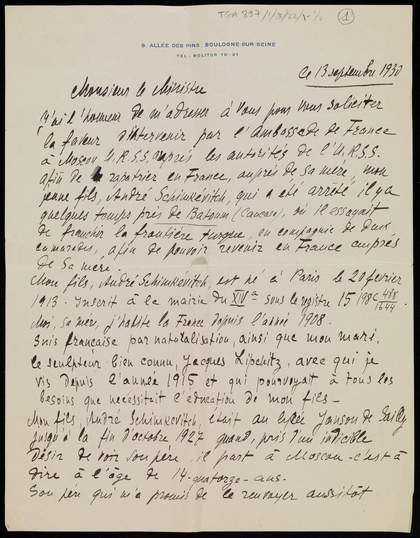 TGA 897/1/3/22/1 1/2
1
9, ALLÉE DES PINS, BOULOGNE-SUR-SEINE
TÉL: MOLITOR 10-21
Ce 13 septembre 1930
Monsieur le Ministre
J'ai l'honneur de m'adresser à Vous pour vous solliciter
la faveur d'intervenir par l'Ambassade de France
à Moscou U.R.S.S. auprès les autorités de l'U.R.S.S.
afin de rapatrier en France, auprès de sa mère, mon
jeune fils, André Schimkévitch, qui a été arrêté il y a
quelques temps près de Batoum (Caucase), où il essayait
de franchir la frontière turque, en compagnie de deux
camarades, afin de pouvoir revenir en France auprès
de sa mère.
Mon fils, André Schimkévitch, est né à Paris le 20 février
1913. Inscrit à la mairie du XIV sous le registre 15
Moi, sa mère, j'habite la France depuis l'année 1908.
Suis française par naturalisation, ainsi que mon mari,
le sculpteur bien connu, Jacques Lipchitz, avec qui je
vis depuis l'année 1915 et qui pourvoyait à tous les
besoins que necessitait l'éducation de mon fils –
Mon fils, André Schimkévitch, était au lycée Janson de Sailly
jusqu'à la fin d'octobre 1927 quand, pris d'un indicible
désir de voir son père, il part à Moscou – c'est à
dire à l'âge de 14 – quatorze – ans.
Son père qui m'a promis de le renvoyer aussitôt